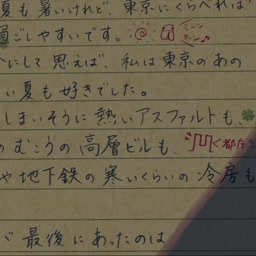 夏も暑いけれど、東京にくらべれば
過ごしやすいです。
にして思えば、私は東京のあの
い夏も好きでした。
しまいそうに熱いアスファルトも、
のむこうの高層ビルも、
や地下鉄の寒いくらいの冷房も
最後にあったのは